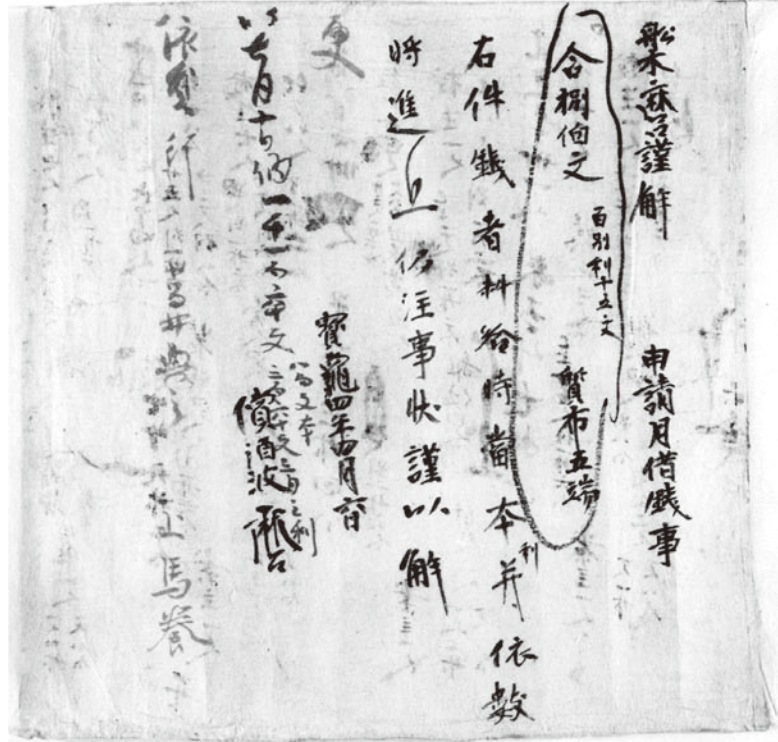 舩木麻呂謹解 申請月借錢事
合捌伯文 百別利十五文 質布五端
右件錢者料給時當本并利依數
將進上仍注事状謹以解
寶龜四年四月
償酒波
更
以七月 納一千一百六十文 八百文本
三百六十文三月之利
依員行 上馬養